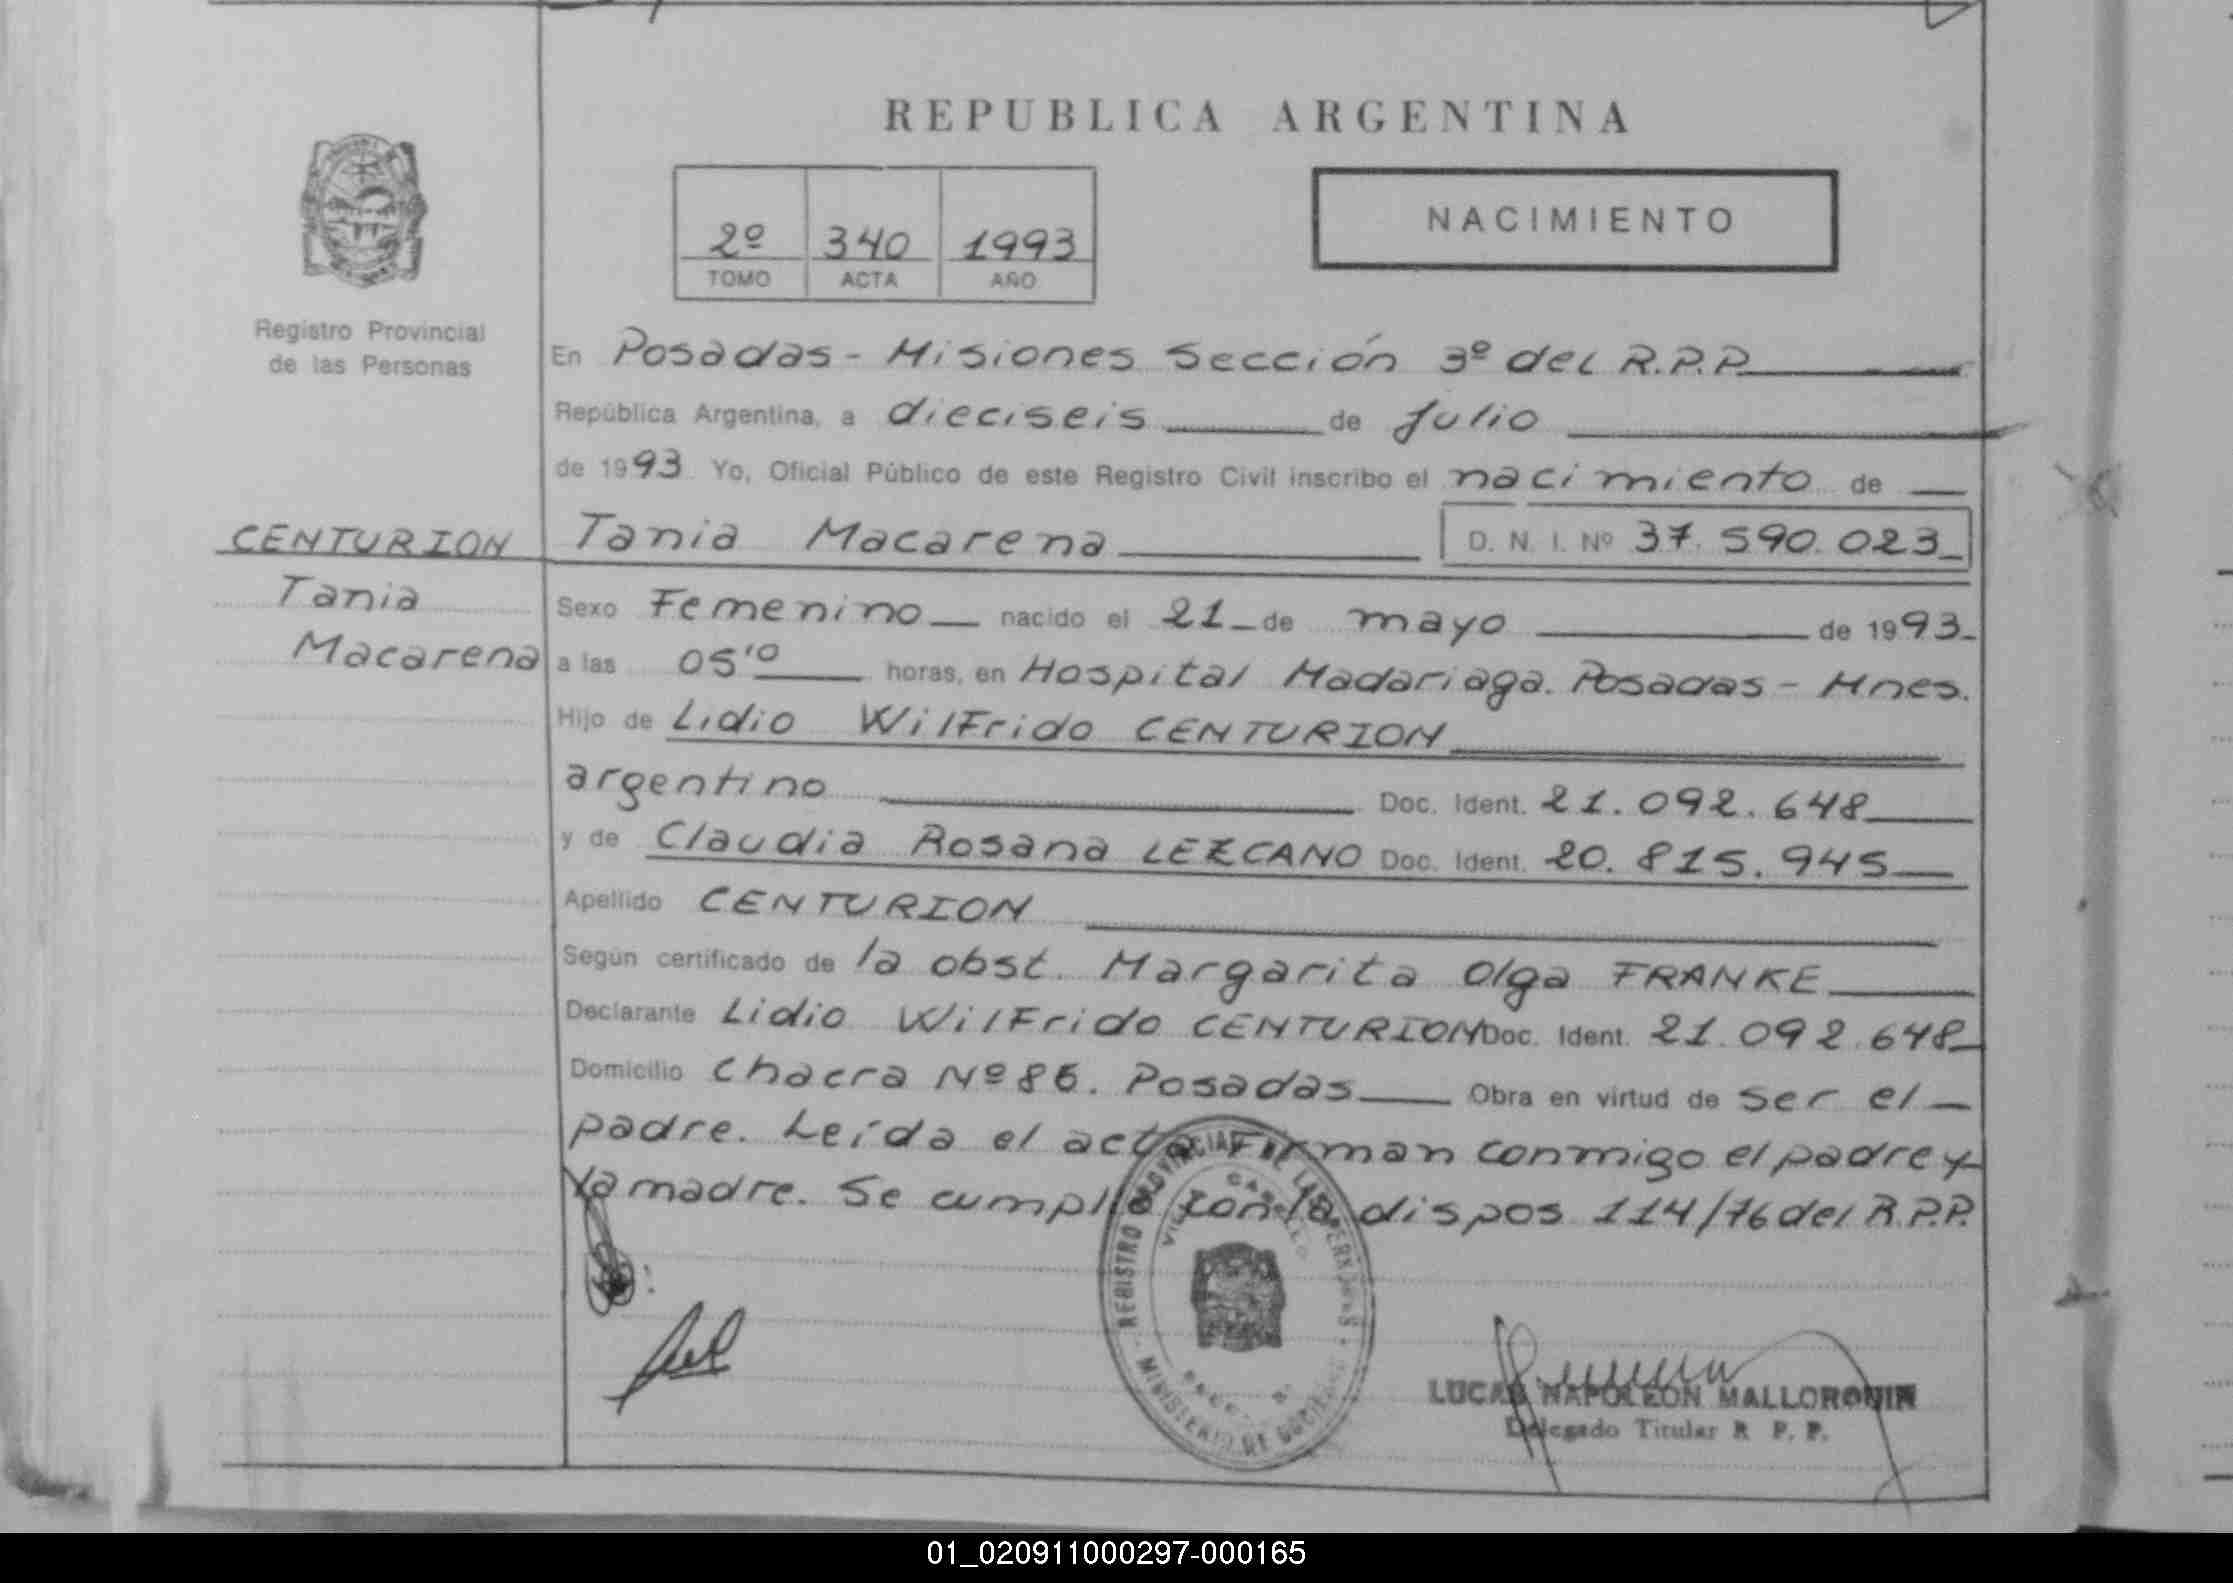 REPUBLICA ARGENTINA
2º 340 1993
TOMO ACTA AÑO
NACIMIENTO
Registro Provincial
de las Personas
En Posadas - Misiones Sección 3º del R.P.P.
República Argentina, a dieciseis de Julio
de 1993 Yo, Oficial Público de este Registro Civil inscribo el nacimiento de
CENTURION
Tania
Macarena
Tania Macarena D. N. I. Nº 37.590.023
Sexo Femenino nacido el 21 de mayo de 1993
a las 05'10 horas, en Hospital Madariaga. Posadas - Mnes.
Hijo de Lidio Wilfrido CENTURION
argentino Doc. Ident. 21.092.648
y de Claudia Rosana LEZCANO Doc. Ident. 20.815.945
Apellido CENTURION
Según certificado de la obst. Margarita Olga FRANKE
Declarante Lidio Wilfrido CENTURION Doc. Ident. 21.092.648
Domicilio Chacra Nº 86. Posadas Obra en virtud de ser el
padre. Leída el acta Firman conmigo el padre y
la madre. Se cumplió con la dispos 114/76 del R.P.P.
REGISTRO PROVINCIAL DE LAS PERSONAS
MINISTERIO DE
LUCAS NAPOLEON MALLORQUIN
Delegado Titular R. P. P.
01_020911000297-000165